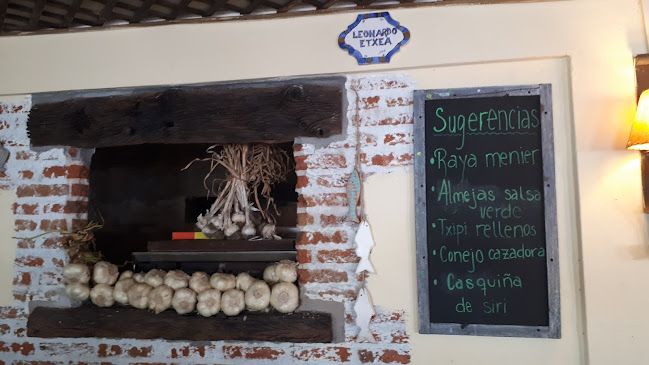 LEONARDO
ETXEA
Sugerencias
• Raya menier
• Almejas salsa
verde
• Txipi rellenos
• Conejo cazadora
• Casquiña
de siri